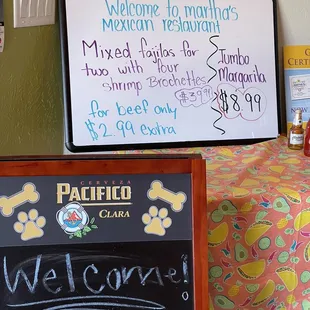 Welcome to martha's
Mexican restaurant
Mixed fajilas for
two with four
shrimp Brochettes
$39.99
for beef only
$2.99 extra
Jumbo
Margarita
$8.99
CERVEZA
PACIFICO
CLARA
Welcome!